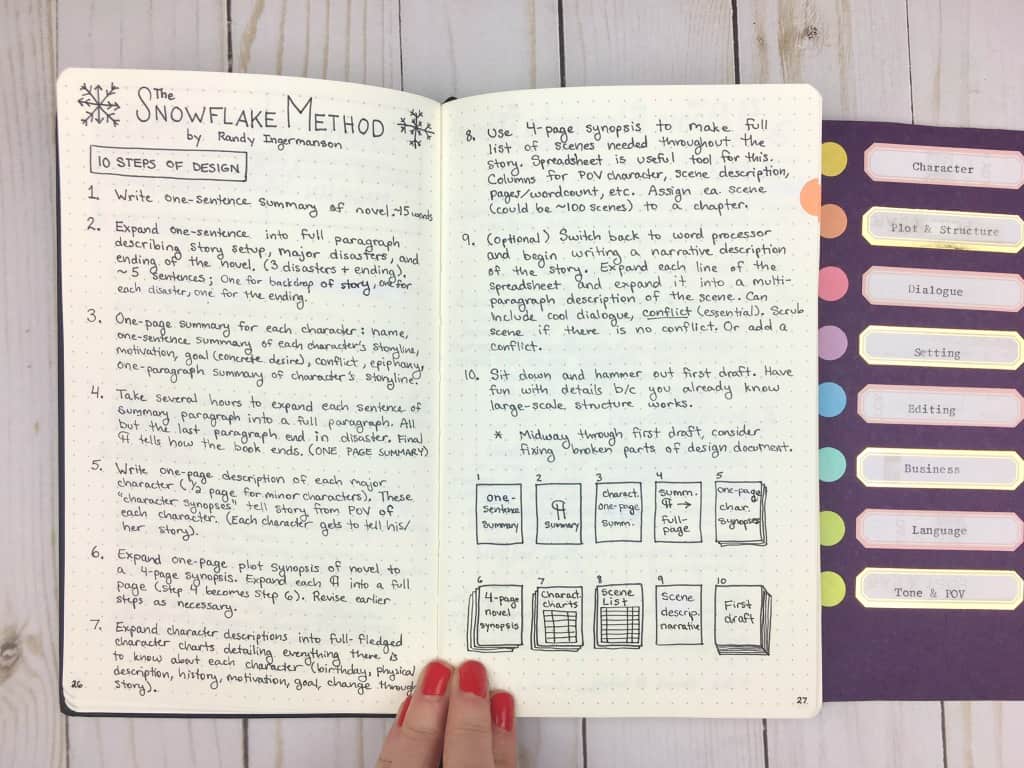 The
SNOWFLAKE METHOD
by Randy Ingermanson
10 STEPS OF DESIGN
1. Write one-sentence summary of novel. ~15 words
2. Expand one-sentence into full paragraph
describing story setup, major disasters, and
ending of the novel. (3 disasters + ending).
~5 sentences; One for backdrop of story, one for
each disaster, one for the ending.
3. One-page summary for each character: name,
one-sentence summary of each character's storyline,
motivation, goal (concrete desire), conflict, epiphany,
one-paragraph summary of character's storyline.
4. Take several hours to expand each sentence of
summary paragraph into a full paragraph. All
but the last paragraph end in disaster. Final
¶ tells how the book ends. (ONE PAGE SUMMARY)
5. Write one-page description of each major
character (1/2 page for minor characters). These
"character synopses" tell story from POV of
each character. (Each character gets to tell his/
her story).
6. Expand one-page plot synopsis of novel to
a 4-page synopsis. Expand each ¶ into a full
page (step 4 becomes step 6). Revise earlier
steps as necessary.
7. Expand character descriptions into full-fledged
character charts detailing everything there is
to know about each character (birthday, physical
description, history, motivation, goal, change through
story).
26
8. Use 4-page synopsis to make full
list of scenes needed throughout the
story. Spreadsheet is useful tool for this.
Columns for POV character, scene description,
pages/wordcount, etc. Assign ea. scene
(could be ~100 scenes) to a chapter.
9. (optional) Switch back to word processor
and begin writing a narrative description
of the story. Expand each line of the
spreadsheet and expand it into a multi-
paragraph description of the scene. Can
include cool dialogue, conflict (essential). Scrub
scene if there is no conflict. Or add a
conflict.
10. Sit down and hammer out first draft. Have
fun with details b/c you already know
large-scale structure works.
* Midway through first draft, consider
fixing broken parts of design document.
1
one-
sentence
summary
2
¶
summary
3
charact.
one-page
summ.
4
summ.
¶ →
full-
page
5
one-page
char.
synopses
6
4-page
novel
synopsis
7
Charact.
charts
8
Scene
List
9
Scene
descrip.
narrative
10
First
draft
27
Character
Plot & Structure
Dialogue
Setting
Editing
Business
Language
Tone & POV